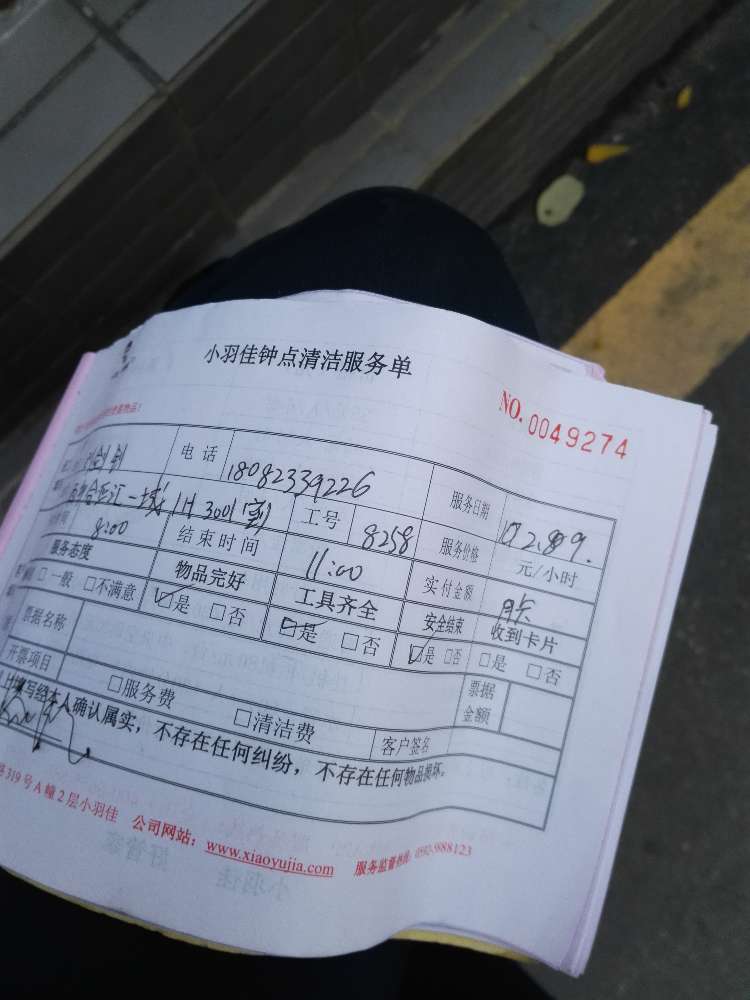 小羽佳钟点清洁服务单
NO. 0049274
电话 18082339226 服务日期
1H 3001室 工号 8258 服务价格 元/小时
8:00 结束时间 11:00 实付金额
服务态度 物品完好 工具齐全 安全结束 收到卡片
□一般 □不满意 ☑是 □否 ☑是 □否 ☑是 □否 □是 □否
票据名称 票据金额
开票项目 □服务费 □清洁费 客户签名
填写经本人确认属实，不存在任何纠纷，不存在任何物品损坏。
319号A幢2层小羽佳 公司网站：www.xiaoyujia.com 服务监督热线：0592-988123